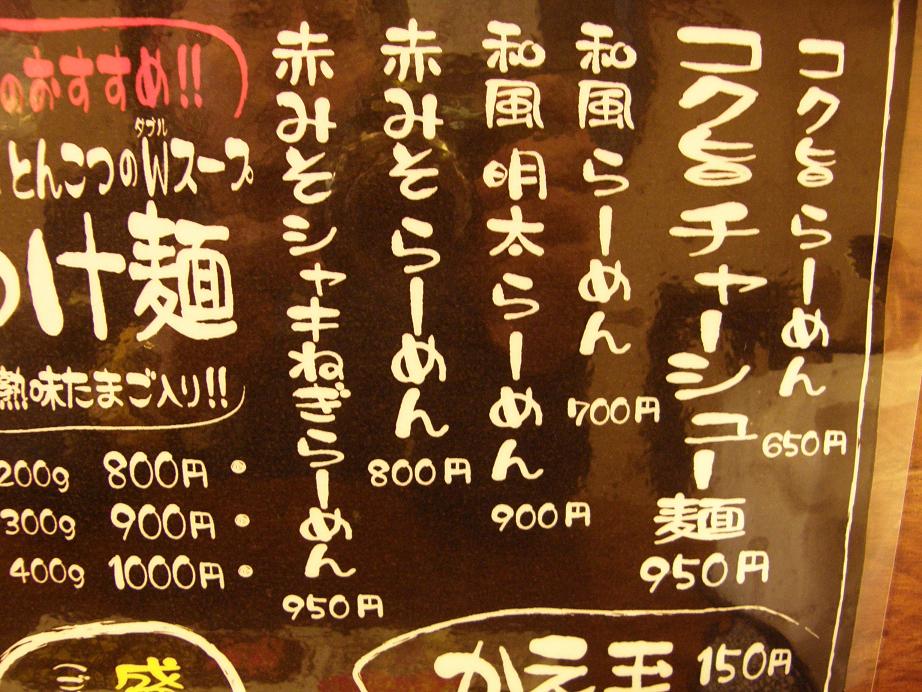 コク旨らーめん
650円
コク旨チャーシュー麺
950円
和風らーめん
700円
和風明太らーめん
900円
赤みそらーめん
800円
赤みそシャキねぎらーめん
950円
のおすすめ!!
ダブル
とんこつのWスープ
つけ麺
熟味たまご入り!!
200g 800円
300g 900円
400g 1000円
かえ玉 150円
ご
盛